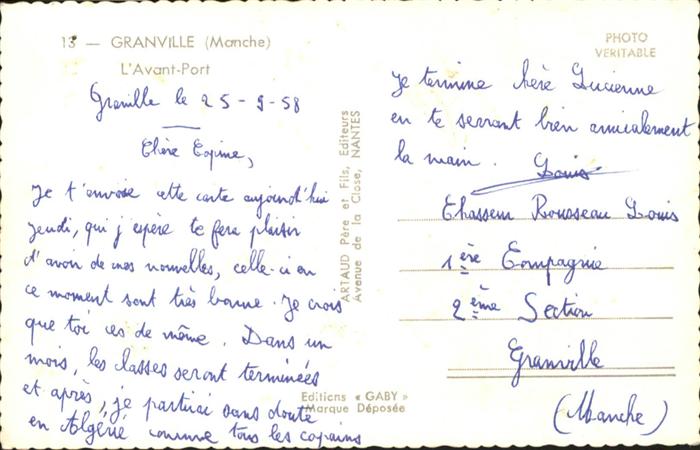 13 — GRANVILLE (Manche)
L'Avant-Port
PHOTO
VÉRITABLE
Granville le 25-9-58
Chère Copine,
Je t'envoie cette carte aujourd'hui
jeudi, qui j'espère te fera plaisir
d'avoir de mes nouvelles, celle-ci en
ce moment sont très bonne. Je crois
que toi ces de même. Dans un
mois, les classes seront terminées
et après, je partirai sans doute
en Algérie comme tous les copains
ARTAUD Père et Fils, Editeurs
Avenue de la Close, NANTES
Editions « GABY »
Marque Déposée
Je termine chère Lucienne
en te serrant bien amicalement
la main. Louis
Chasseur Rousseau Louis
1ère Compagnie
2ème Section
Granville
(Manche)